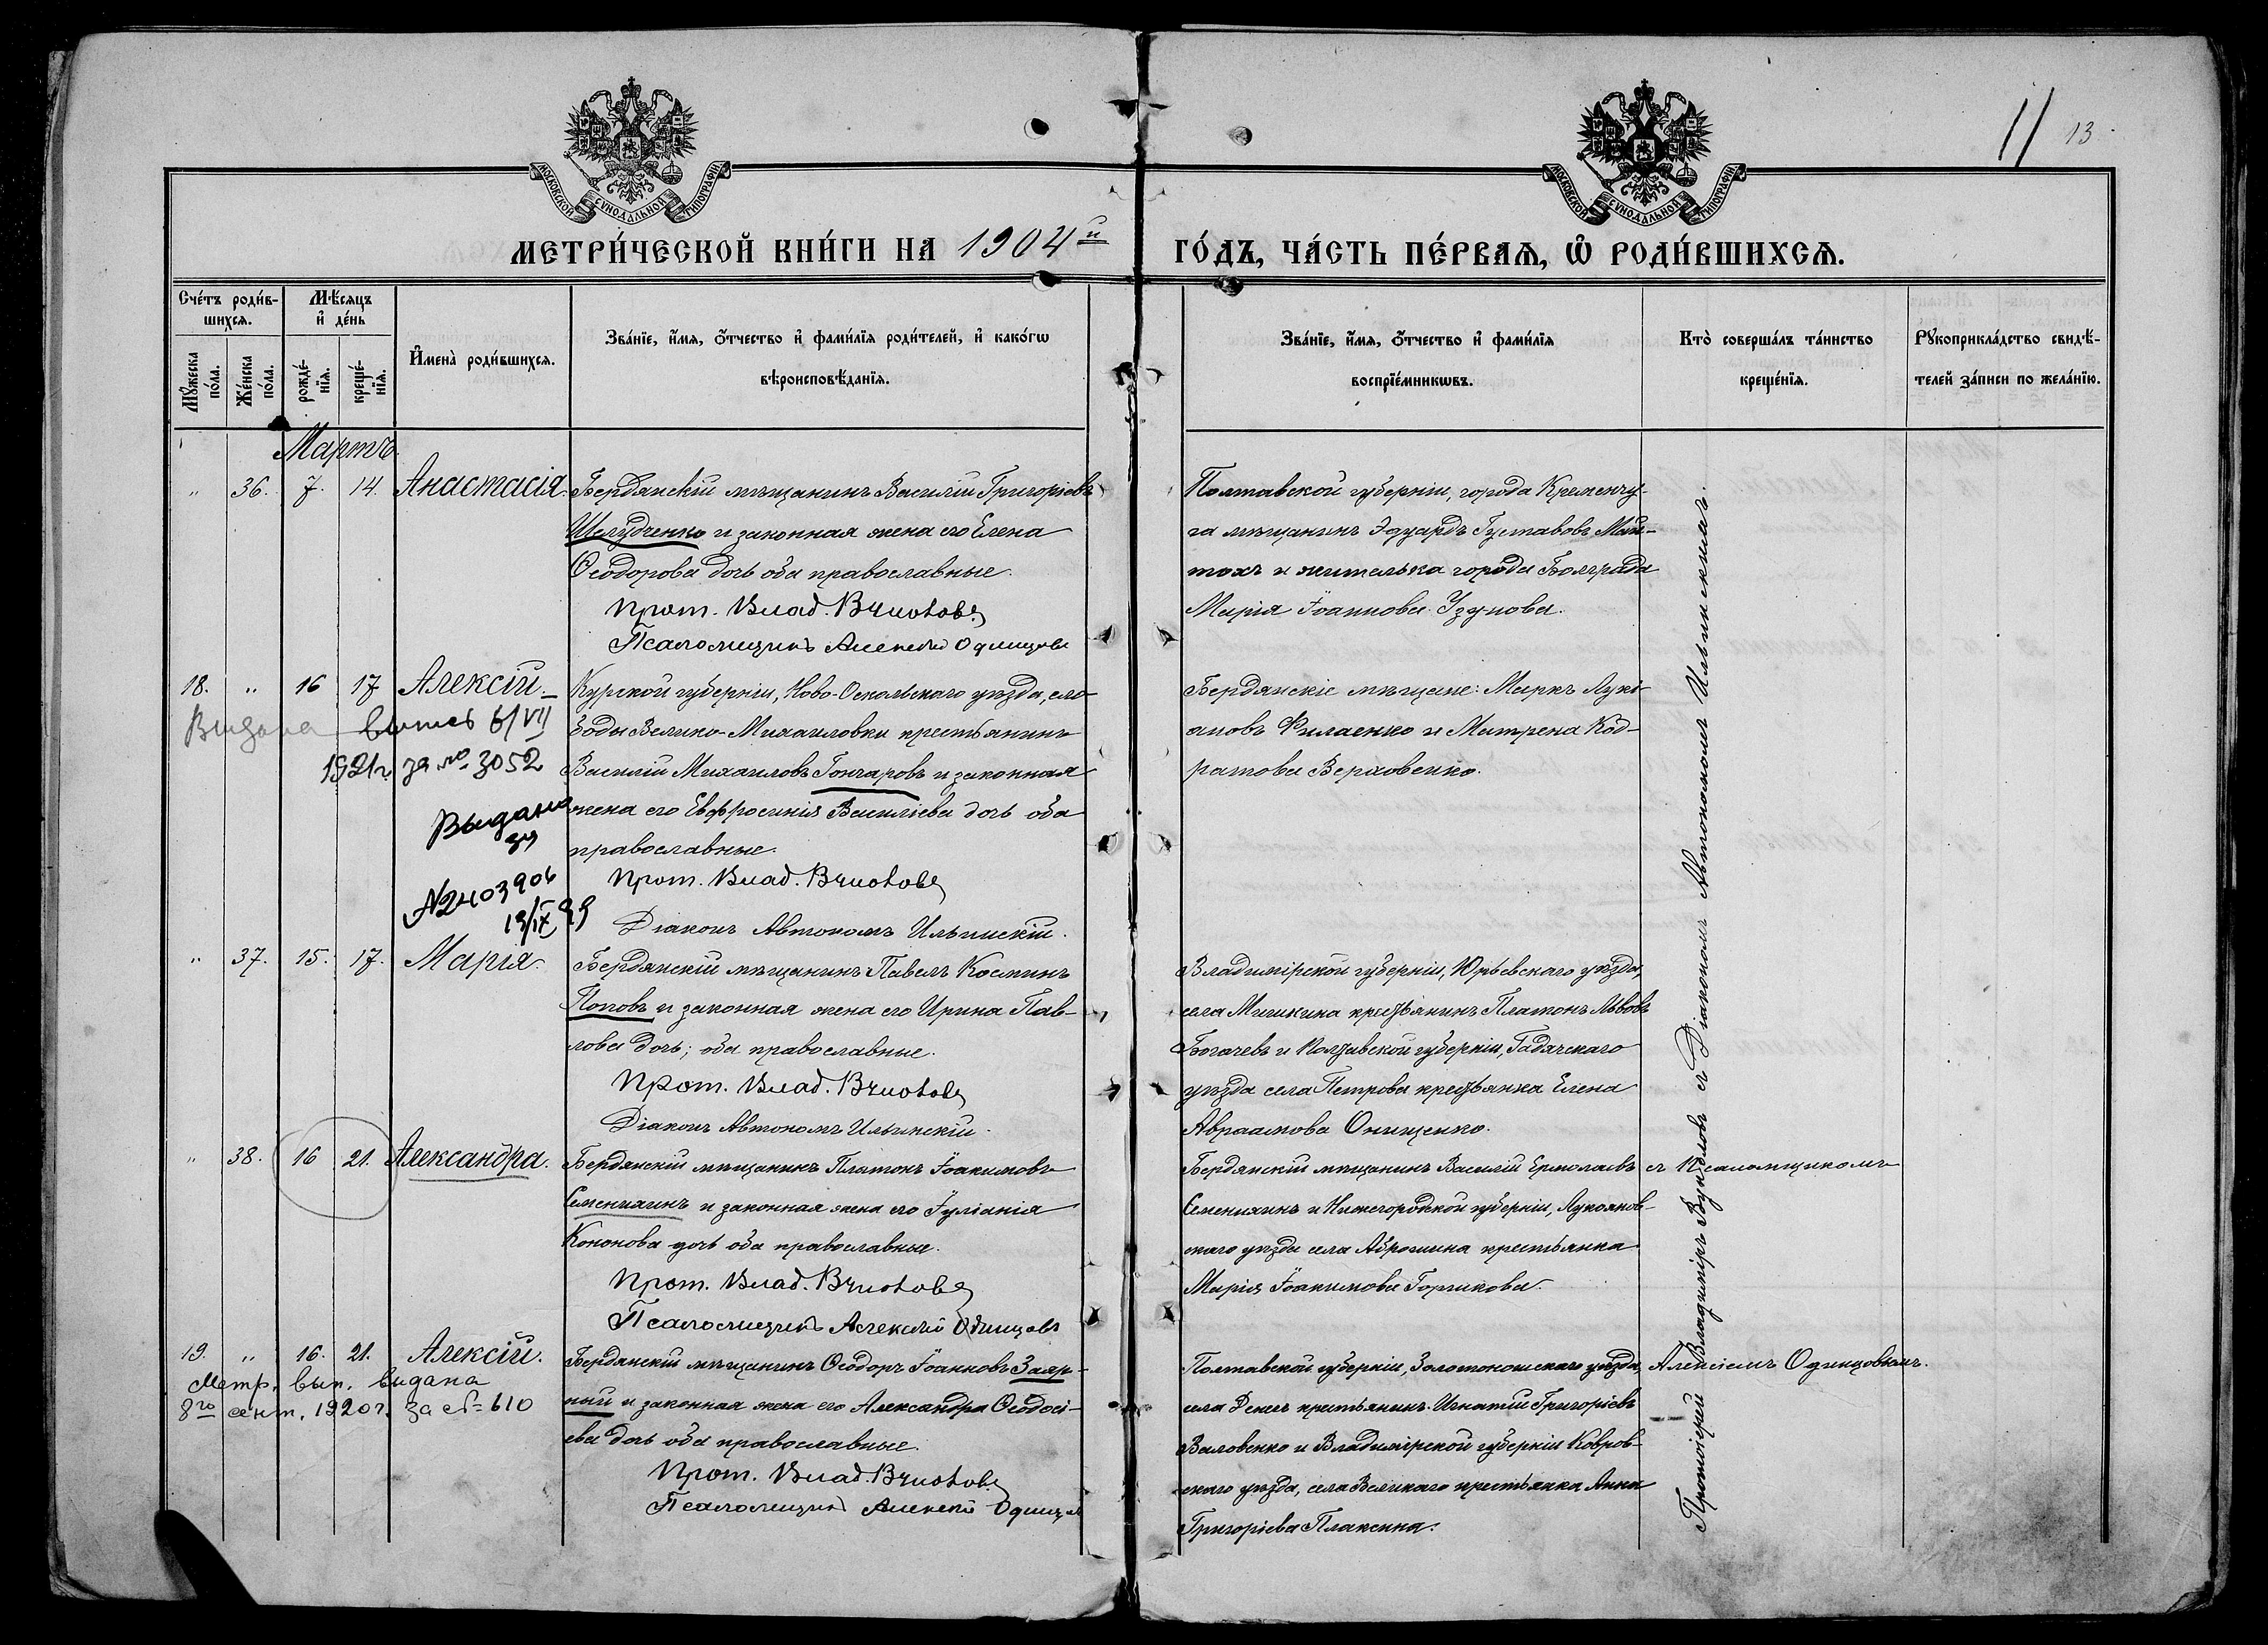 11 13
МОСКОВСКОЙ СѴНОДАЛЬНОЙ ТИПОГРАФІИ
МОСКОВСКОЙ СѴНОДАЛЬНОЙ ТИПОГРАФІИ
МЕТРИ́ЧЕСКОЙ КНИ́ГИ НА 1904й ГО́ДЪ, ЧА́СТЬ ПЕ́РВАѦ, Ѡ҆ РОДИ́ВШИХСѦ.
Сче́тъ роди́в-
шихсѧ.
Мꙋ́жеска по́ла.
Же́нска по́ла.
Мѣ́сяцъ
и҆ де́нь
рожде́-нїѧ.
креще́-нїѧ.
И҆мена̀ роди́вшихсѧ.
Зва́нїе, и҆́мѧ, ѻ҆́тчество и҆ фами́лїѧ роди́телей, и҆ како́гѡ
вѣроисповѣ́данїѧ.
Зва́нїе, и҆́мѧ, ѻ҆́тчество и҆ фами́лїѧ
воспрїе́мникѡвъ.
Кто̀ соверша́лъ та́инство
креще́нїѧ.
Рꙋкоприкла́дство свидѣ́-
телей за́писи по жела́нїю.
Мартъ
" 36. 7. 14. Анастасія.
Бердянскій мѣщанинъ Василій Григоріевъ
Шелудченко и законная жена его Елена
Ѳеодорова дочь оба православные.
Прот. Влад. Вуколовъ
Псаломщикъ Алексій Одинцовъ
Полтавской губерніи, города Кременчу-
га мѣщанинъ Эдуардъ Густавовъ
и жителька города Болграда
Марія Іоаннова Узунова.
18. " 16 17 Алексій
Выдана выпись 6/VII
1921 г. за № 3052
Выдана
за
N2403906
19/IX
Курской губерніи, Ново-Оскольскаго уѣзда, сло-
боды Велико-Михаиловки крестьянинъ
Василій Михаиловъ Гончаровъ и законная
жена его Евфросинія Василіева дочь оба
православные.
Прот. Влад. Вуколовъ
Діаконъ Автономъ Ильинскій.
Бердянскіе мѣщане: Маркъ Лукі-
ановъ Филаенко и Матрена Код-
ратова Верховенко.
" 37. 15. 17. Марія.
Бердянскій мѣщанинъ Павелъ Косминъ
Поповъ и законная жена его Ирина Пав-
лова дочь; оба православные.
Прот. Влад. Вуколовъ
Діаконъ Автономъ Ильинскій.
Владимірской губерніи, Юрьевскаго уѣзда,
села крестьянинъ Платонъ Львовъ
Богачевъ и Полтавской губерніи, Гадячскаго
уѣзда села Петрова крестьянка Елена
Авраамова Онищенко.
" 38. 16 21. Александра.
Бердянскій мѣщанинъ Платонъ Іоакимовъ
Семенихинъ и законная жена его Іуліанія
Кононова дочь оба православные.
Прот. Влад. Вуколовъ
Псаломщикъ Алексій Одинцовъ
Бердянскій мѣщанинъ Василій Ермолаевъ
Семенихинъ и Нижегородской губерніи, Лукоянов-
скаго уѣзда села крестьянка
Марія Іоакимова Горшкова.
19. " 16. 21. Алексій.
Метр. вып. выдана
8го сент. 1920 г. за № 610
Бердянскій мѣщанинъ Ѳеодоръ Іоанновъ Заяр-
ный и законная жена его Александра Ѳеодосі-
ева дочь оба православные.
Прот. Влад. Вуколовъ
Псаломщикъ Алексій Одинцовъ
Полтавской губерніи, Золотоношскаго уѣзда,
села крестьянинъ Игнатій Григоріевъ
Валовенко и Владимірской губерніи Ковров-
скаго уѣзда, села Великаго крестьянка Анна
Григоріева Плаксина.
Протоіерей Владиміръ Вуколовъ съ Діакономъ Автономомъ Ильинскимъ.
съ Псаломщикомъ
Алексіемъ Одинцовымъ.